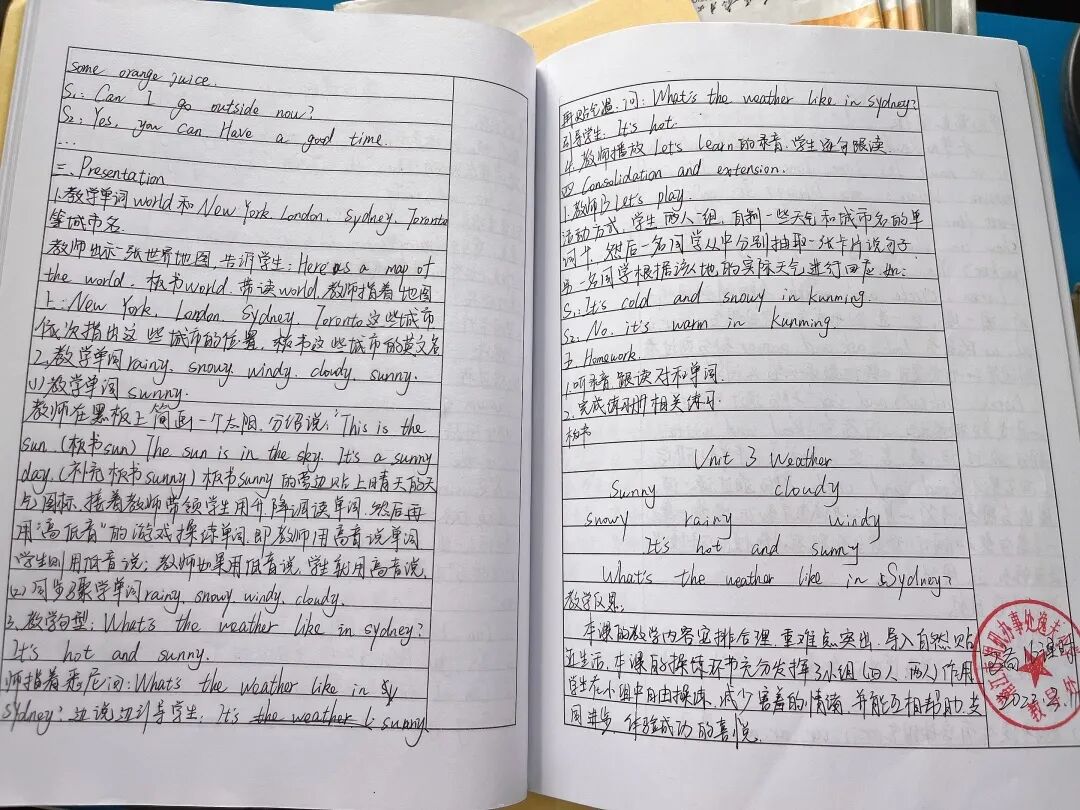 some orange juice.
S1: Can I go outside now?
S2: Yes, you can Have a good time.
...
三、Presentation
1.教学单词world和New York London, Sydney, Toronto
等城市名.
教师出示一张世界地图,告诉学生:Here is a map of
the world. 板书world. 带读world,教师指着地图
上:New York, London, Sydney, Toronto这些城市
依次指出这些城市的位置, 板书这些城市的英文名
2,教学单词rainy, snowy, windy, cloudy, sunny.
(1)教学单词sunny.
教师在黑板上简画一个太阳.介绍说:This is the
sun.(板书sun) The sun is in the sky. It's a sunny
day.(补充板书sunny)板书sunny的旁边贴上晴天的天
气图标.接着教师带领学生用升降调读单词.然后再
用"高低音"的游戏操练单词.即教师用高音说单词
学生则用低音说;教师如果用低音说,学生就用高音说.
(2)同步骤学单词rainy, snowy windy, cloudy.
3.教学句型:What's the weather like in sydney?
It's hot and sunny.
师指着悉尼问:What's the weather like in sy
sydney?边说边引导学生:It's the weather sunny
再贴气温,问:What's the weather like in sydney?
引导学生:It's hot.
4.教师播放Let's learn的录音.学生逐句跟读.
四 Consolidation and extension.
1.教师 Let's play.
活动方式 学生两人一组,自制一些天气和城市名的单
词卡,然后一名同学从中分别抽取一张卡片说句子.
另一名同学根据该地的实际天气进行回应如:
S1:It's cold and snowy in Kunming.
S2:No. it's warm in Kunming.
五.Homework.
1.听录音,跟读对和单词.
2.完成练习册相关练习.
板书
Unit 3 Weather
sunny cloudy
snowy rainy windy
It's hot and sunny
What's the weather like in Sydney?
教学反思:
本课的教学内容安排合理.重难点突出.导入自然贴
近生活.本课的操练环节充分发挥了小组(四人、两人)作用
学生在小组中自由操练,减少害羞的情绪,并能互相帮助,共
同进步,体验成功的喜悦.
办事处逸夫
2023